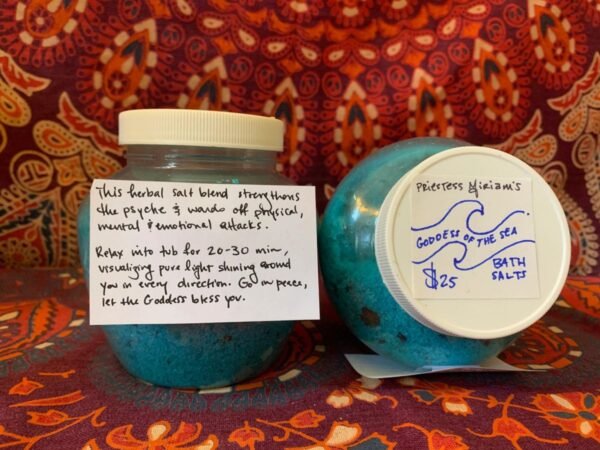 This herbal salt blend strengthens
the psyche & wards off physical,
mental & emotional attacks.
Relax into tub for 20-30 min,
visualizing pure light shining around
you in every direction. Go in peace,
let the Goddess bless you.
PRIESTESS MIRIAM'S
GODDESS OF THE SEA
BATH
SALTS
$25